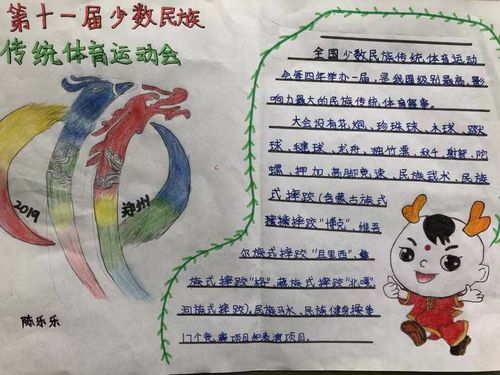 第十一届少数民族
传统体育运动会
2019
郑州
陈乐乐
全国少数民族传统体育运动
会每四年举办一届，是我国级别最高、影
响力最大的民族传统体育赛事。
大会设有花炮、珍珠球、木球、蹴
球、毽球、龙舟、独竹漂、秋千、射弩、陀
螺、押加、高脚竞速、民族武术、民族
式摔跤(含蒙古族式
摔跤"博克"、维吾
尔族式摔跤"且里西"、彝
族式摔跤"格"、藏族式摔跤"北嘎"
回族式摔跤)、民族马术、民族健身操等
17个竞赛项目和表演项目。